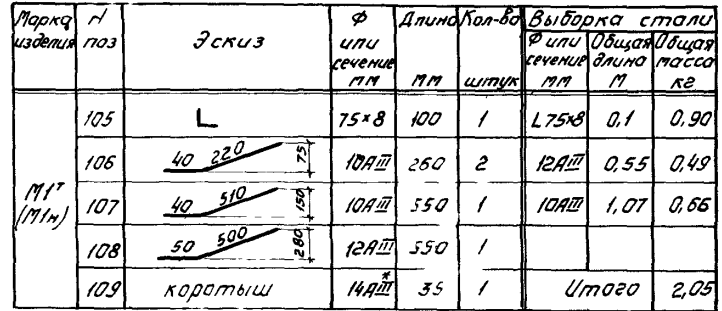 Марка изделия | N поз | Эскиз | Ф или сечение мм | Длина мм | Кол-во штук | Выборка стали
Ф или сечение мм | Общая длина м | Общая масса кг
М1ᵀ (М1н)
105 | L | 75×8 | 100 | 1 | L75×8 | 0,1 | 0,90
106 | 40 220 75 | 10АIII | 260 | 2 | 12АIII | 0,55 | 0,49
107 | 40 510 150 | 10АIII | 550 | 1 | 10АIII | 1,07 | 0,66
108 | 50 500 280 | 12АIII | 550 | 1
109 | коротыш | 14АIII* | 35 | 1 | Итого | 2,05